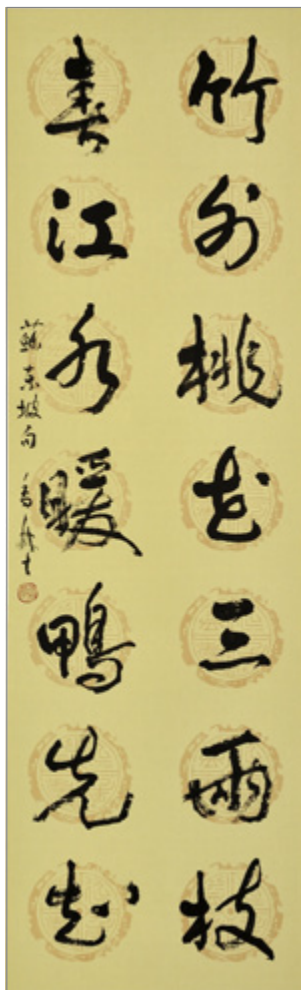 竹外桃花三兩枝
春江水暖鴨先知
蘇東坡句